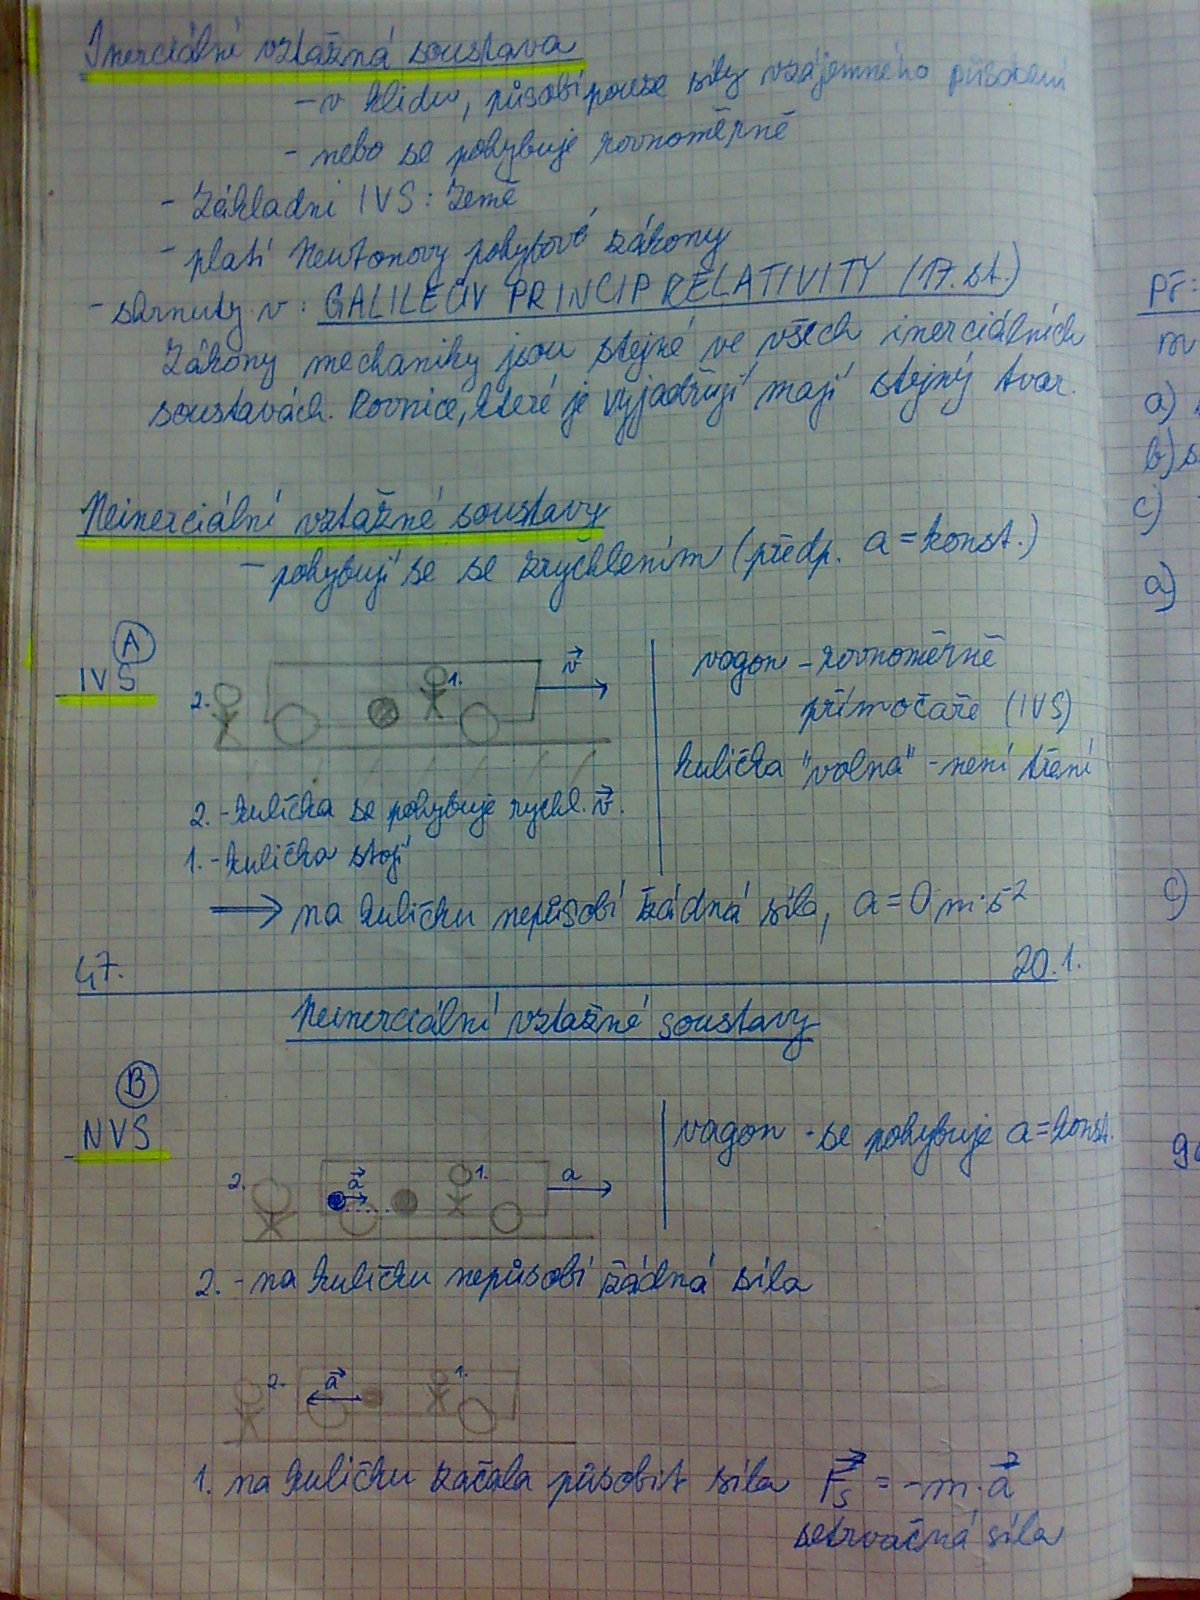 Inerciální vztažná soustava
- v klidu, působí pouze síly vzájemného působení
- nebo se pohybuje rovnoměrně
- základní IVS: Země
- platí Newtonovy pohybové zákony
- shrnuty v: GALILEŮV PRINCIP RELATIVITY (17. st.)
Zákony mechaniky jsou stejné ve všech inerciálních
soustavách. Rovnice, které je vyjadřují mají stejný tvar.
Neinerciální vztažné soustavy
- pohybují se se zrychlením (předp. a = konst.)
A
IVS
2.
1.
v⃗
vagon - rovnoměrně
přímočaře (IVS)
kulička "volná" - není tření
2. - kulička se pohybuje rychl. v⃗.
1. - kulička stojí
⟹ na kuličku nepůsobí žádná síla, a = 0 m·s⁻²
47.
20.1.
Neinerciální vztažné soustavy
B
NVS
2.
a⃗
1.
a
vagon - se pohybuje a = konst.
2. - na kuličku nepůsobí žádná síla
2.
a⃗
1.
1. na kuličku začala působit síla F⃗s = -m·a⃗
setrvačná síla
Př:
m
a)
b) s
c)
a)
c)